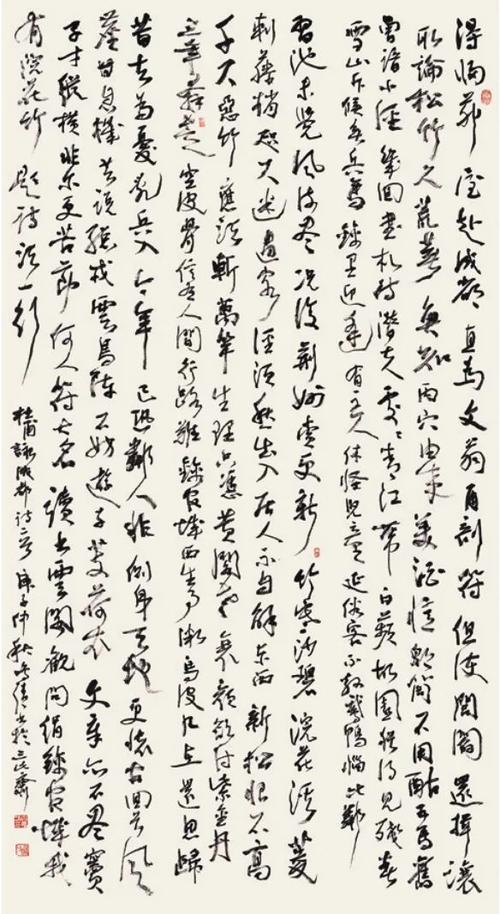 得歸茅屋赴成都直為文翁再剖符但使閭閻還揖讓
敢論松竹久荒蕪魚知丙穴由來美酒憶郫筒不用酤五馬舊
曾諳小徑幾回書札待潛夫處處青江帶白蘋故園猶得見殘春
雪山斥候無兵馬錦里逢迎有主人休怪兒童延俗客不教鵝鴨惱比鄰
習池未覺風流盡況復荊州賞更新竹寒沙碧浣花溪菱
刺藤梢咫尺迷過客徑須愁出入居人不自解東西新松恨不高
千尺惡竹應須斬萬竿生理只憑黃閣老衰顏欲付紫金丹
三年奔走空皮骨信有人間行路難錦官城西生事微烏皮几在還思歸
昔去為憂亂兵入今來已恐鄰人非側身天地更懷古回首風
塵甘息機共說總戎雲鳥陣不妨遊子芰荷衣文章亦不盡竇
子才縱橫非爾更苦節何人符大名讀書雲閣觀問絹錦官城我
有浣花竹題詩須一行
杜甫詠成都詩庚子仲秋